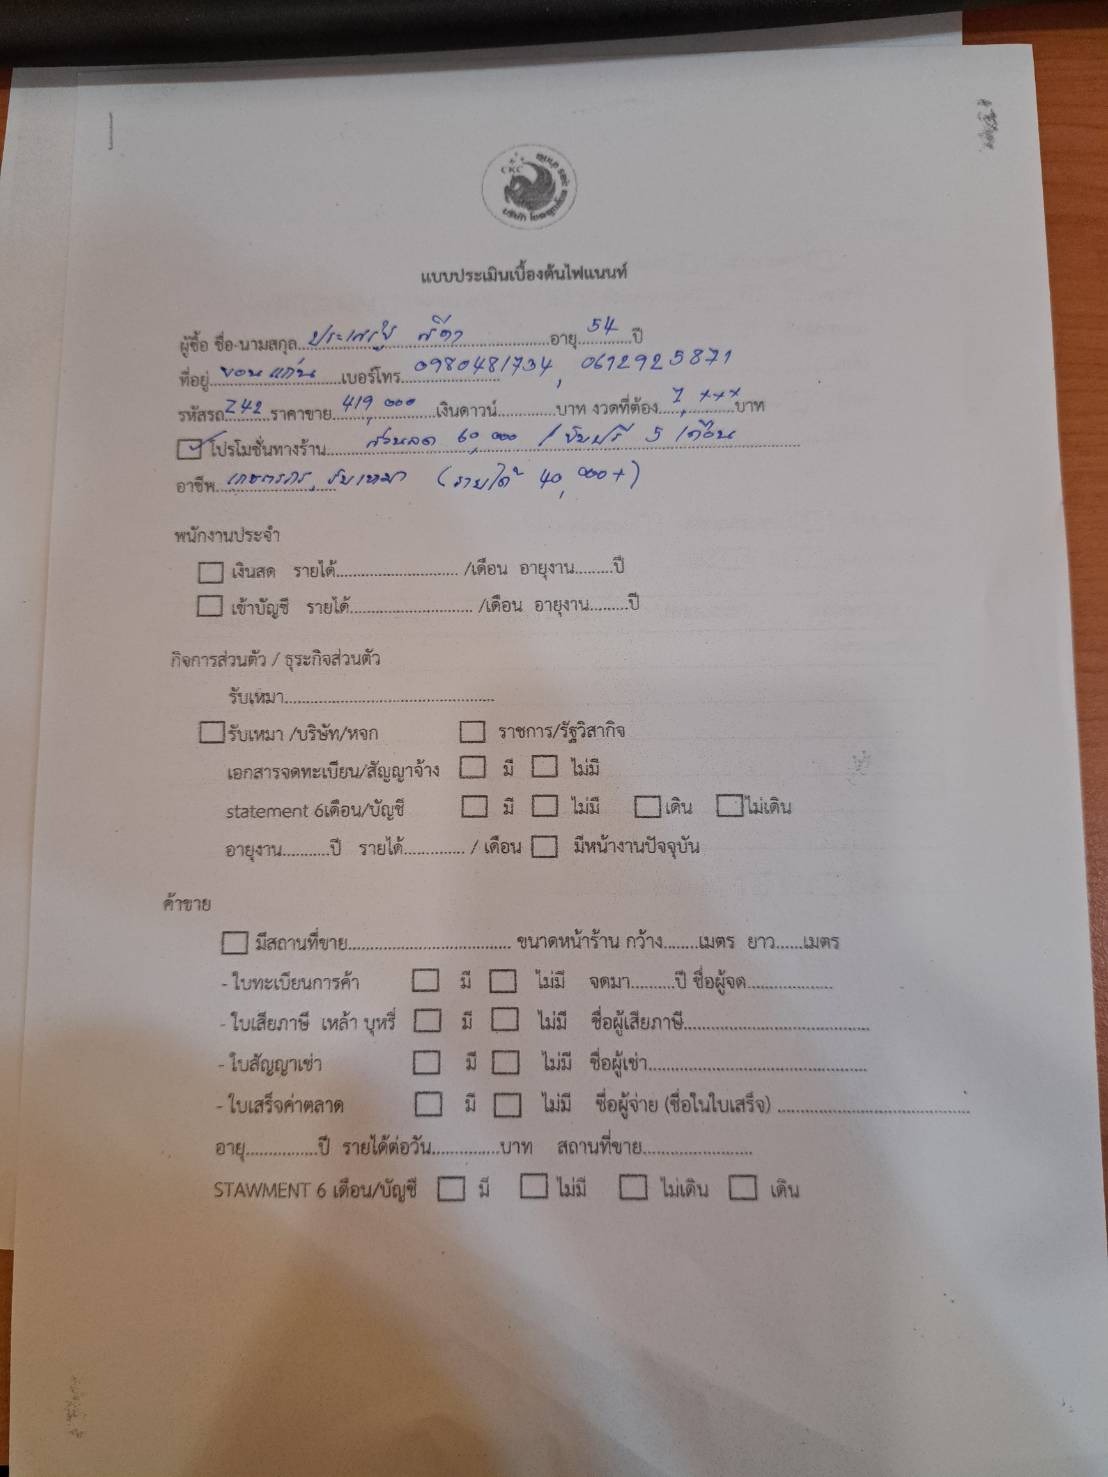 แบบประเมินเบื้องต้นไฟแนนท์
ผู้ซื้อ ชื่อ-นามสกุล...ประเสริฐ สีดา...อายุ...54...ปี
ที่อยู่...ขอนแก่น...เบอร์โทร...0980481734, 0612925871
รหัสรถ...Z42...ราคาขาย...419,000...เงินดาวน์.............บาท งวดที่ต้อง...7,***...บาท
☑ โปรโมชั่นทางร้าน...ส่วนลด 60,000 / ขับฟรี 5 เดือน
อาชีพ...เกษตรกร, รับเหมา (รายได้ 40,000+)
พนักงานประจำ
☐ เงินสด รายได้............................ /เดือน อายุงาน.........ปี
☐ เข้าบัญชี รายได้............................ /เดือน อายุงาน.........ปี
กิจการส่วนตัว / ธุระกิจส่วนตัว
รับเหมา................................................
☐ รับเหมา /บริษัท/หจก ☐ ราชการ/รัฐวิสากิจ
เอกสารจดทะเบียน/สัญญาจ้าง ☐ มี ☐ ไม่มี
statement 6เดือน/บัญชี ☐ มี ☐ ไม่มี ☐ เดิน ☐ ไม่เดิน
อายุงาน...........ปี รายได้.............. / เดือน ☐ มีหน้างานปัจจุบัน
ค้าขาย
☐ มีสถานที่ขาย..................................... ขนาดหน้าร้าน กว้าง........เมตร ยาว......เมตร
- ใบทะเบียนการค้า ☐ มี ☐ ไม่มี จดมา..........ปี ชื่อผู้จด...................
- ใบเสียภาษี เหล้า บุหรี่ ☐ มี ☐ ไม่มี ชื่อผู้เสียภาษี..........................................
- ใบสัญญาเช่า ☐ มี ☐ ไม่มี ชื่อผู้เช่า..................................................
- ใบเสร็จค่าตลาด ☐ มี ☐ ไม่มี ชื่อผู้จ่าย (ชื่อในใบเสร็จ) ............................................
อายุ................ปี รายได้ต่อวัน...............บาท สถานที่ขาย.........................
STAWMENT 6 เดือน/บัญชี ☐ มี ☐ ไม่มี ☐ ไม่เดิน ☐ เดิน